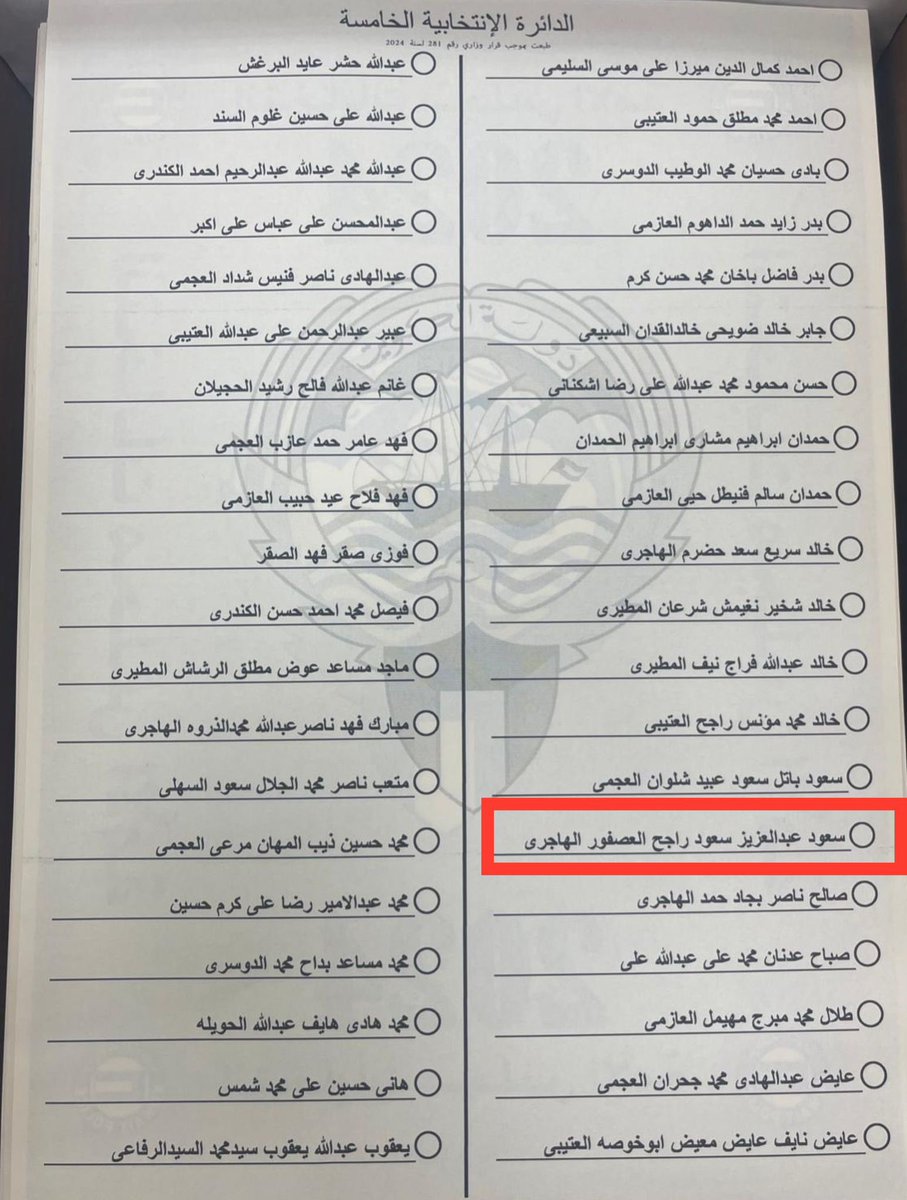 الدائرة الإنتخابية الخامسة
طبعت بموجب قرار وزاري رقم 281 لسنة 2024
احمد كمال الدين ميرزا على موسى السليمى
احمد محمد مطلق حمود العتيبى
بادى حسيان محمد الوطيب الدوسرى
بدر زايد حمد الداهوم العازمى
بدر فاضل باخان محمد حسن كرم
جابر خالد ضويحى خالدالقدان السبيعى
حسن محمود محمد عبدالله على رضا اشكنانى
حمدان ابراهيم مشارى ابراهيم الحمدان
حمدان سالم فنيطل حيى العازمى
خالد سريع سعد حضرم الهاجرى
خالد شخير نغيمش شرعان المطيرى
خالد عبدالله فراج نيف المطيرى
خالد محمد مؤنس راجح العتيبى
سعود باتل سعود عبيد شلوان العجمى
سعود عبدالعزيز سعود راجح العصفور الهاجرى
صالح ناصر بجاد حمد الهاجرى
صباح عدنان محمد على عبدالله على
طلال محمد مبرج مهيمل العازمى
عايض عبدالهادى محمد جحران العجمى
عايض نايف عايض معيض ابوخوصه العتيبى
عبدالله حشر عايد البرغش
عبدالله على حسين غلوم السند
عبدالله محمد عبدالله عبدالرحيم احمد الكندرى
عبدالمحسن على عباس على اكبر
عبدالهادى ناصر فنيس شداد العجمى
عبير عبدالرحمن على عبدالله العتيبى
غانم عبدالله فالح رشيد الحجيلان
فهد عامر حمد عازب العجمى
فهد فلاح عيد حبيب العازمى
فوزى صقر فهد الصقر
فيصل محمد احمد حسن الكندرى
ماجد مساعد عوض مطلق الرشاش المطيرى
مبارك فهد ناصرعبدالله محمدالذروه الهاجرى
متعب ناصر محمد الجلال سعود السهلى
محمد حسين ذيب المهان مرعى العجمى
محمد عبدالامير رضا على كرم حسين
محمد مساعد بداح محمد الدوسرى
محمد هادى هايف عبدالله الحويله
هانى حسين على محمد شمس
يعقوب عبدالله يعقوب سيدمحمد السيدالرفاعى
دولة الكويت